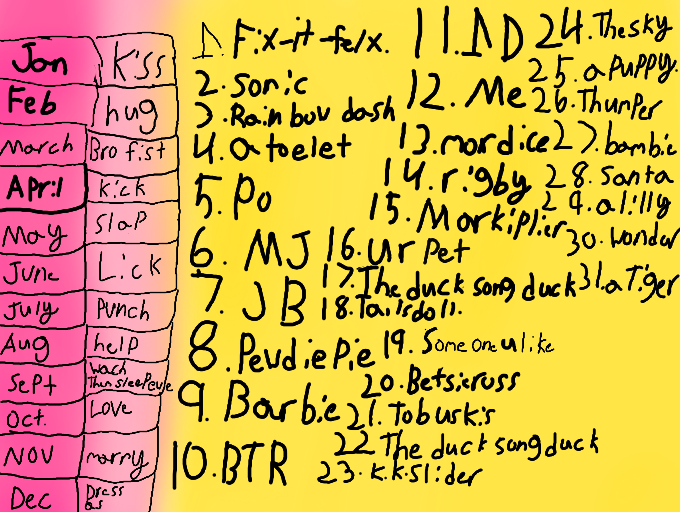 Jan kiss
Feb hug
March Bro fist
April kick
May slap
June Lick
July Punch
Aug help
Sept wach Them sleePevie
Oct. Love
Nov marry
Dec Dress as
1. Fix-it-felx.
2. Sonic
3. Rainbow dash
4. a toelet
5. Po
6. MJ
7. JB
8. PewdiePie
9. Barbie
10. BTR
11. 1D
12. Me
13. mordice
14. rigby
15. Markiplier
16. Ur Pet
17. The duck song duck
18. Tailsdoll.
19. Some one u like
20. Betsieross
21. Tobuskis
22 The duck song duck
23. K.K.Slider
24. The sky
25. a Puppy.
26. Thumper
27. bambie
28. Santa
29. a lilly
30. wondar
31. a Tiger